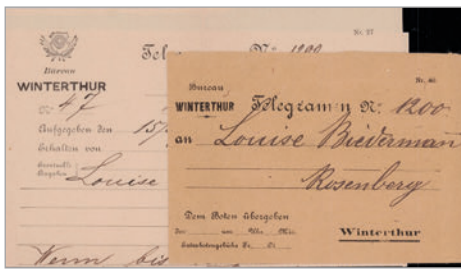 Nr. 27
Tel Nº 1200
Bureau
WINTERTHUR
Nº 47
Aufgegeben den 15/
Erhalten von
Louise
Wenn bis
Nr. 40
Bureau
WINTERTHUR Telegramm Nº: 1200
an Louise Biederman
Rosenberg
Dem Boten übergeben
um Uhr Min.
Fr. Ct.
Winterthur